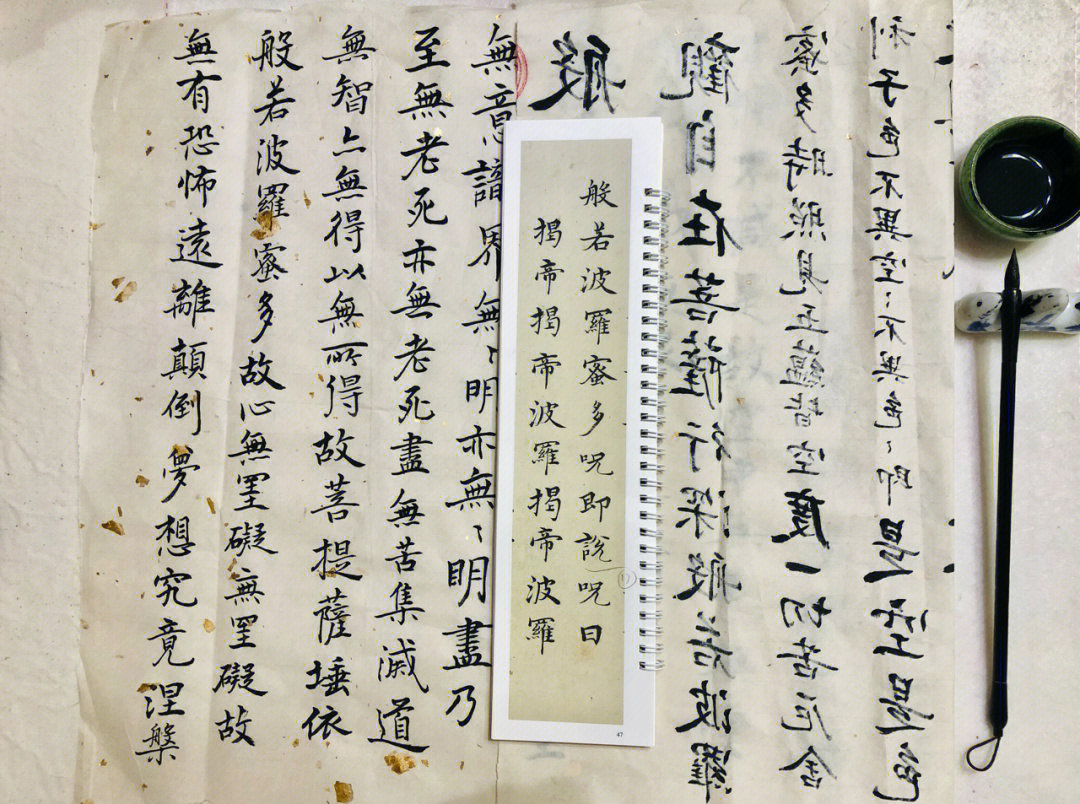 般
觀自在菩薩行深般若波羅
蜜多時照見五蘊皆空度一切苦厄舍
利子色不異空〻不異色〻即是空是色
般若波羅蜜多呪即說呪曰
揭帝揭帝波羅揭帝波羅
47
無意識界無〻明亦無〻明盡乃
至無老死亦無老死盡無苦集滅道
無智亦無得以無所得故菩提薩埵依
般若波羅蜜多故心無罣礙無罣礙故
無有恐怖遠離顛倒夢想究竟涅槃